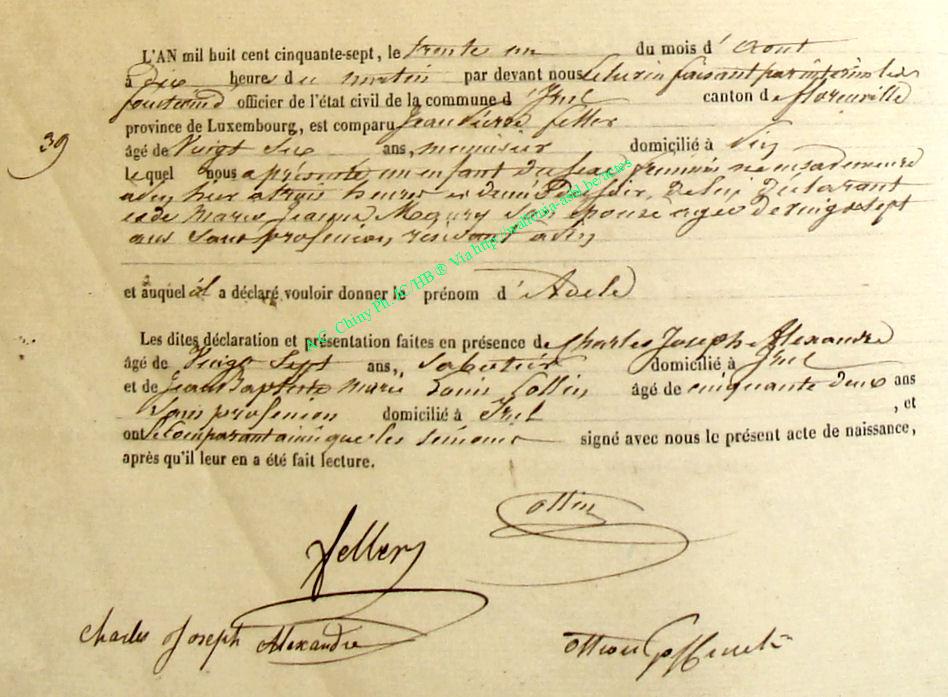 L'AN mil huit cent cinquante-sept, le trente un du mois d' aout
à dix heures du matin par devant nous faisant par interim les
fonctions d officier de l'état civil de la commune d' Izel canton de florenville
39
province de Luxembourg, est comparu Jean Pierre feller
âgé de Vingt Six ans, menuisier domicilié à
lequel nous a présenté un enfant du sexe féminin né en sa demeure
hier a trois heures et demie du soir, de lui déclarant
et de Marie Jeanne son épouse agée de vingt sept
ans sans profession, résidant a
et auquel il a déclaré vouloir donner le prénom d' Adele
Les dites déclaration et présentation faites en présence de Charles Joseph Alexandre
âgé de Vingt Sept ans, Sabotier domicilié à Izel
et de Jean Baptiste Marie Louis Collin âgé de cinquante deux ans
Sans profession domicilié à Izel , et
ont le comparant ainsi que les témoins signé avec nous le présent acte de naissance,
après qu'il leur en a été fait lecture.
ottin
feller
Charles Joseph Alexandre
A.G. Chiny Ph. AC/HB ® Via http://